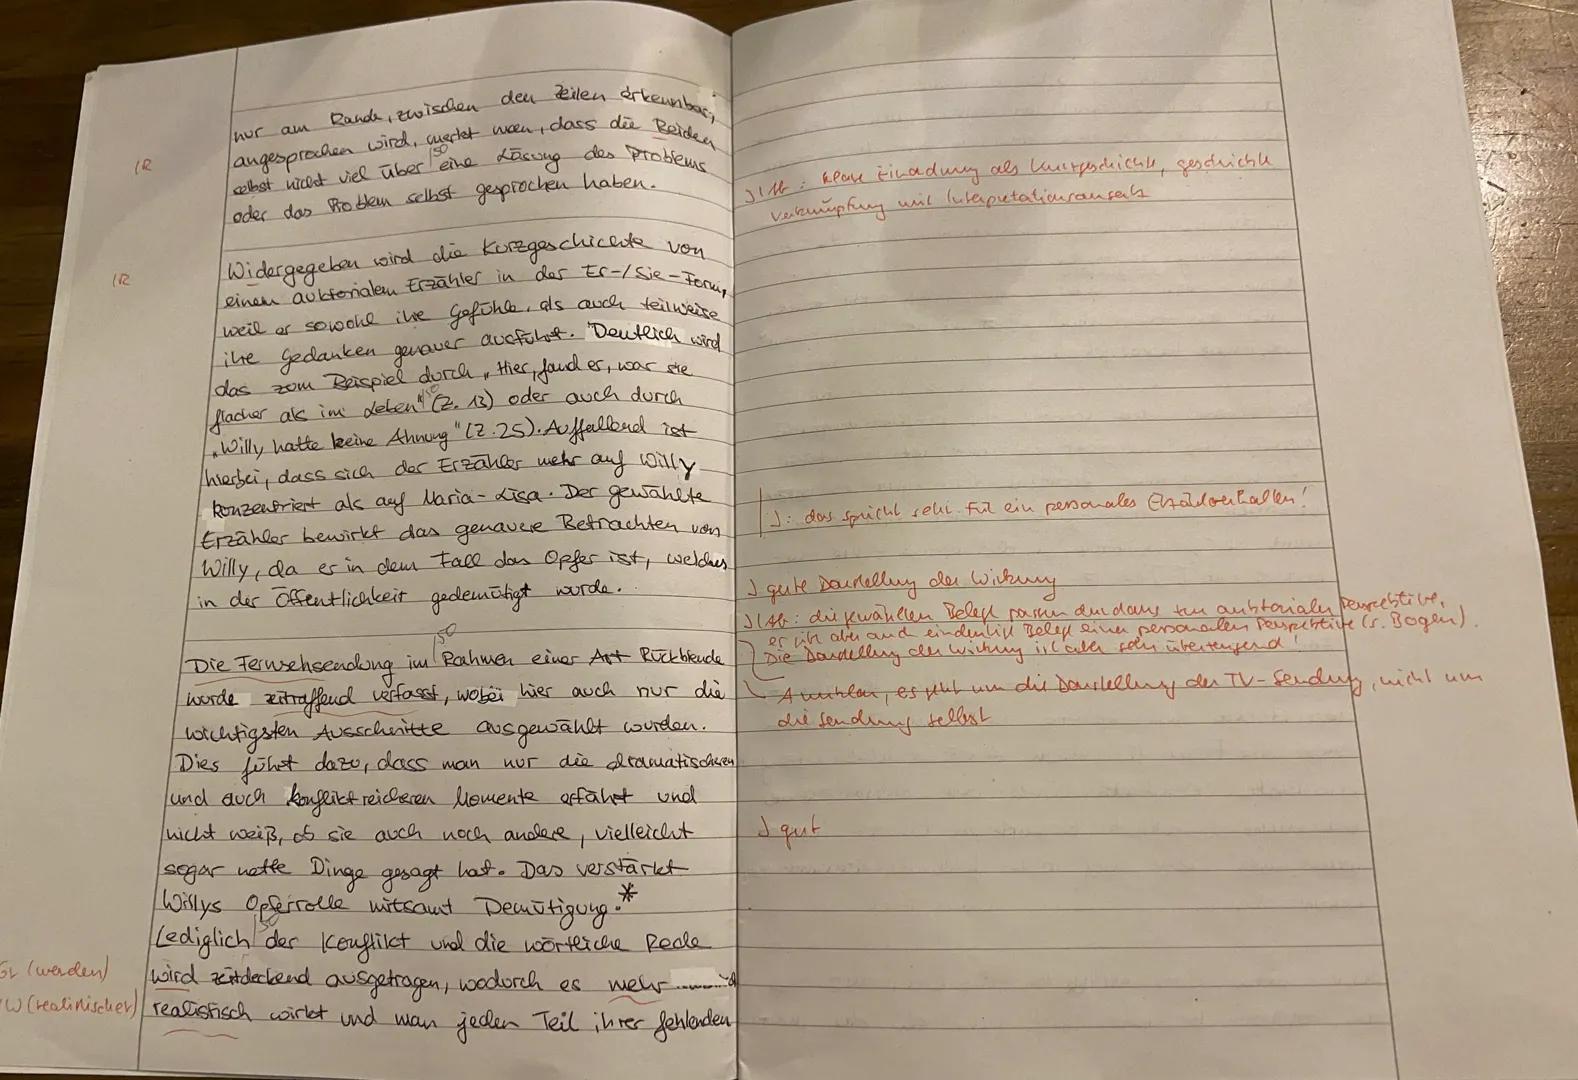 nur am Rande, zwischen den Zeilen erkennbar,
angesprochen wird, merkt man, dass die Beiden
selbst nicht viel über eine Lösung des Problems
oder das Problem selbst gesprochen haben.
Widergegeben wird die Kurzgeschichte von
einem auktorialen Erzähler in der Er-/Sie-Form,
weil er sowohl ihre Gefühle, als auch teilweise
ihre Gedanken genauer ausführt. Deutlich wird
das zum Beispiel durch „Hier, fand er, war sie
flacher als im Leben" (Z. 13) oder auch durch
„Willy hatte keine Ahnung" (Z. 25). Auffallend ist
hierbei, dass sich der Erzähler mehr auf Willy
konzentriert als auf Maria-Lisa. Der gewählte
Erzähler bewirkt das genauere Betrachten von
Willy, da er in dem Fall das Opfer ist, welches
in der Öffentlichkeit gedemütigt wurde.
Die Fernsehsendung im Rahmen einer Art Rückblende
wurde zeitraffend verfasst, wobei hier auch nur die
wichtigsten Ausschnitte ausgewählt wurden.
Dies führt dazu, dass man nur die dramatischeren
und auch konfliktreicheren Momente erfährt und
nicht weiß, ob sie auch noch andere, vielleicht
sogar nette Dinge gesagt hat. Das verstärkt
Willys Opferrolle mitsamt Demütigung.*
Lediglich der Konflikt und die wörtliche Rede
wird zeitdeckend ausgetragen, wodurch es mehr
realistisch wirkt und man jeden Teil ihrer fehlenden
IR
IR
(werden)
W (realistischer)
klare Einordnung als Kurzgeschichte, geschickte
Verknüpfung mit Interpretationsansatz
J: das spricht sehr für ein personales Erzählverhalten!
J gute Darstellung der Wirkung
die gewählten Belege passen durchaus zur auktorialen Perspektive,
es gibt aber auch eindeutige Belege einer personalen Perspektive (s. Bogen).
Die Darstellung der Wirkung ist aber sehr überzeugend!
Achtung, es geht um die Darstellung der TV-Sendung, nicht um
die Sendung selbst
J gut